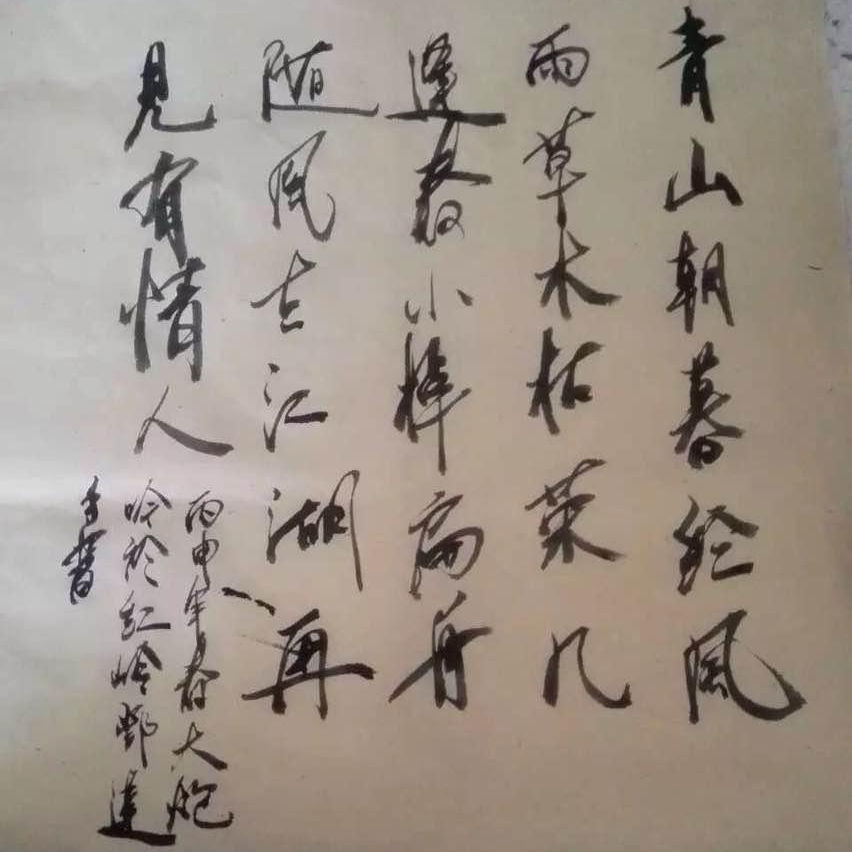 青山朝暮经风
雨草木枯荣几
逢春小棹扁舟
随风去江湖再
见有情人
丙申年春大炮
吟于红岭邨建
手书